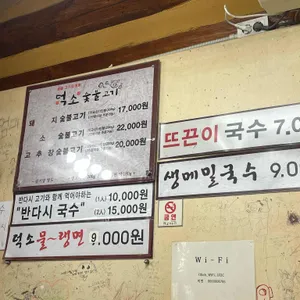 덕소 숯불고기
돼지 숯불고기 17,000원
소 숯불고기 22,000원
고추장 숯불고기 20,000원
반다시 고기와 함께 먹어야하는
"반다시 국수"
(1인) 10,000원
(2인) 15,000원
덕소물~랭면 9,000원
뜨끈이국수 7.0
생메밀국수 9.0
금연
Wi-Fi